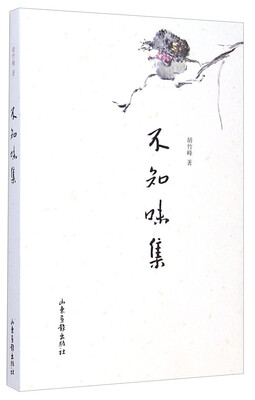 胡竹峰 著
不知味集
山东画报出版社
胡竹峰 著
不知味集
山东画报出版社